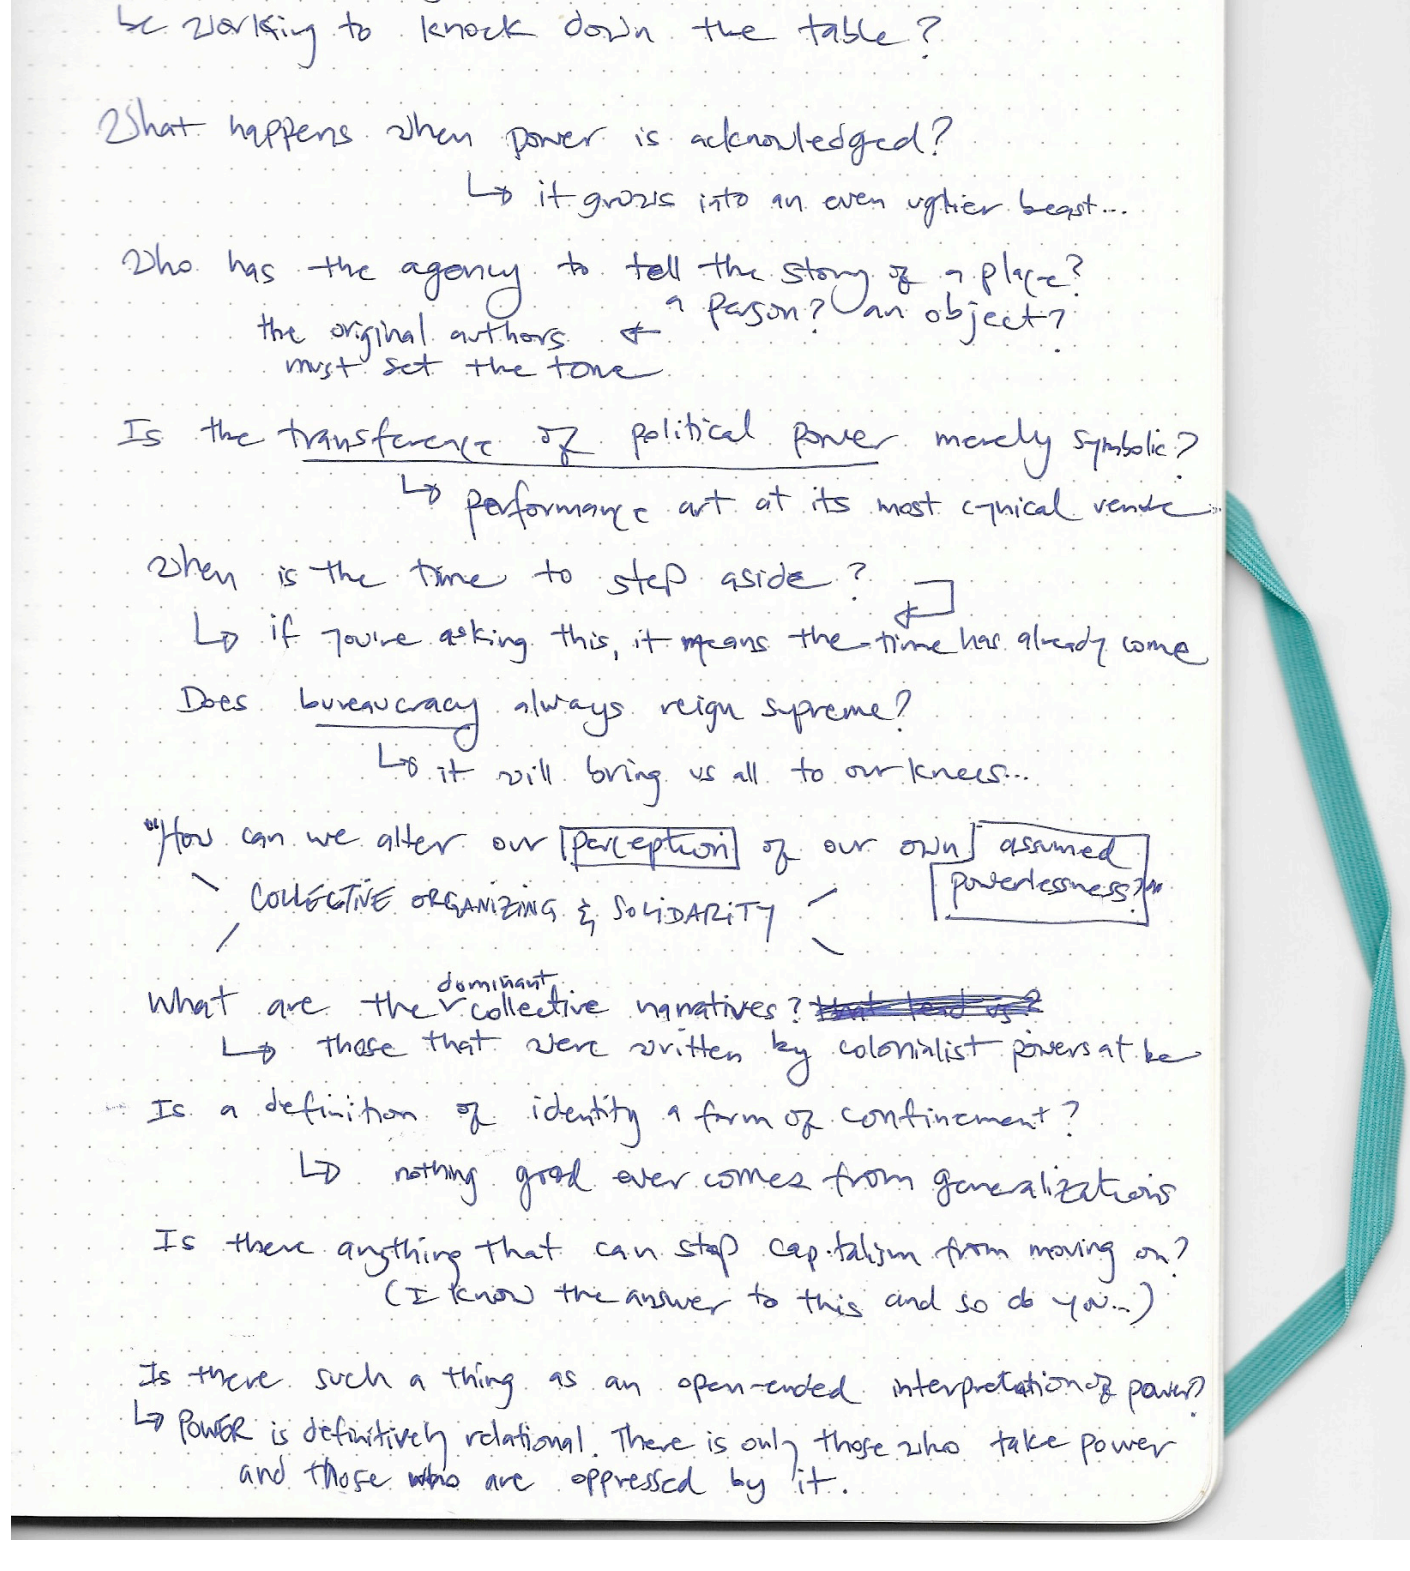 be working to knock down the table?
What happens when power is acknowledged?
↳ it grows into an even uglier beast...
Who has the agency to tell the story of a place?
a person? an object?
the original authors ←
must set the tone
Is the transference of political power merely symbolic?
↳ performance art at its most cynical venue...
When is the time to step aside?
↳ if you're asking this, it means the time has already come
Does bureaucracy always reign supreme?
↳ it will bring us all to our knees...
"How can we alter our perception of our own assumed
powerlessness?"
COLLECTIVE ORGANIZING & SOLIDARITY
dominant
What are the collective narratives? that lead us?
↳ those that were written by colonialist powers at be
Is a definition of identity a form of confinement?
↳ nothing good ever comes from generalizations
Is there anything that can stop capitalism from moving on?
(I know the answer to this and so do you...)
Is there such a thing as an open-ended interpretation of power?
↳ POWER is definitively relational. There is only those who take power
and those who are oppressed by it.